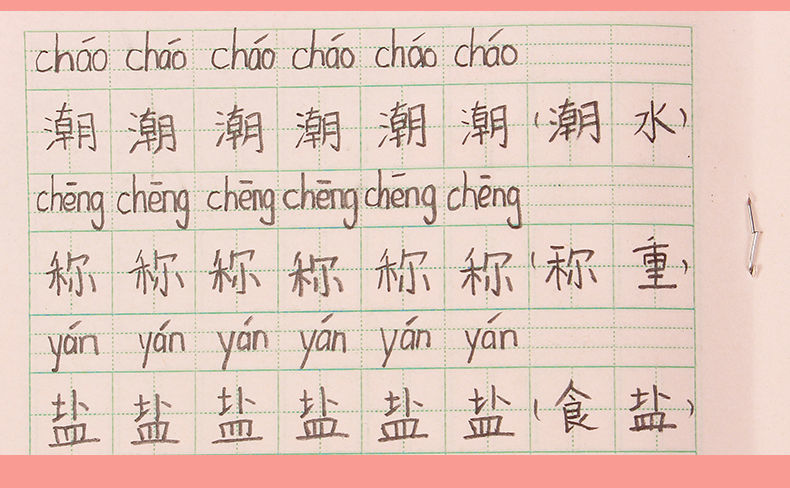 cháo cháo cháo cháo cháo cháo
潮 潮 潮 潮 潮 潮 (潮 水)
chēng chēng chēng chēng chēng chēng
称 称 称 称 称 称 (称 重)
yán yán yán yán yán yán
盐 盐 盐 盐 盐 盐 (食 盐)